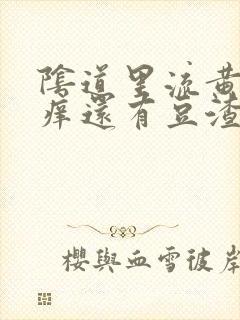 陰道里流黃
痒還有豆渣
櫻與血雪彼岸